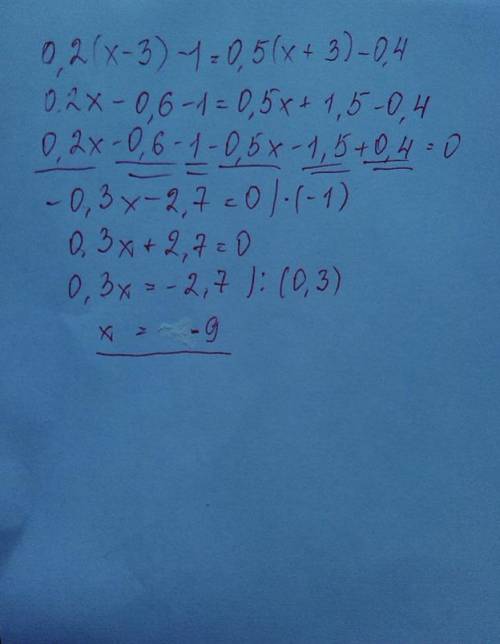 0,2(x-3)-1=0,5(x+3)-0,4
0.2x-0,6-1=0,5x+1,5-0,4
0,2x-0,6-1-0,5x-1,5+0,4=0
-0,3x-2,7=0)·(-1)
0,3x+2,7=0
0,3x=-2,7):(0,3)
x=-9